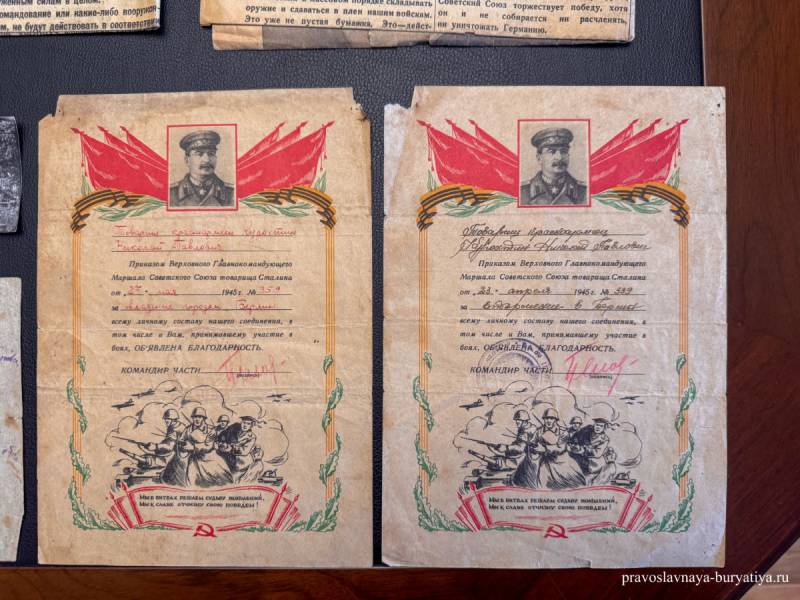 женным силам в целом.
командование или какие-либо вооружен-
не будут действовать в соответствии
в массовом порядке складывать
оружие и сдаваться в плен нашим войскам.
Это уже не пустая бумажка. Это—дейст-
Советский Союз торжествует победу, хотя
он и не собирается ни расчленять,
ни уничтожать Германию.
Товарищ красноармеец
Николай Павлович
Приказом Верховного Главнокомандующего
Маршала Советского Союза товарища Сталина
от 2 мая 1945 г. № 359
за овладение городом Берлин
всему личному составу нашего соединения, в
том числе и Вам, принимавшему участие в
боях, ОБ'ЯВЛЕНА БЛАГОДАРНОСТЬ.
КОМАНДИР ЧАСТИ
(подпись)
Мы в битвах решаем судьбу поколений,
Мы к славе отчизну свою поведем!
Товарищ красноармеец
Николай Павлович
Приказом Верховного Главнокомандующего
Маршала Советского Союза товарища Сталина
от 23 апреля 1945 г. № 339
за вторжение в Берлин
всему личному составу нашего соединения, в
том числе и Вам, принимавшему участие в
боях, ОБ'ЯВЛЕНА БЛАГОДАРНОСТЬ.
КОМАНДИР ЧАСТИ
(подпись)
Мы в битвах решаем судьбу поколений,
Мы к славе отчизну свою поведем!
pravoslavnaya-buryatiya.ru